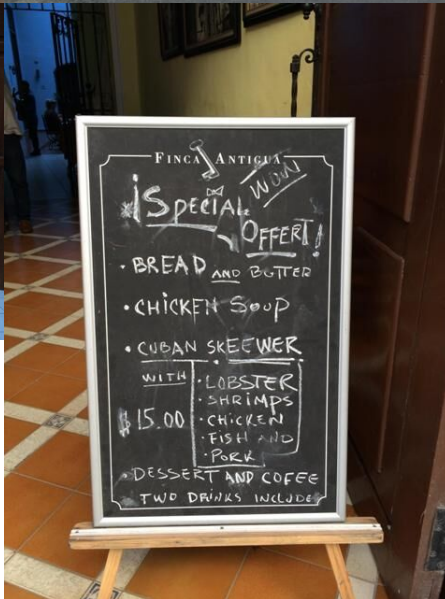 FINCA ANTIGUA
WOW
¡SPECIAL
OFFERT!
• BREAD AND BUTTER
• CHICKEN SOUP
• CUBAN SKEEWER
WITH
• LOBSTER
• SHRIMPS
$15.00
• CHICKEN
• FISH AND
• PORK
• DESSERT AND COFEE
TWO DRINKS INCLUDE